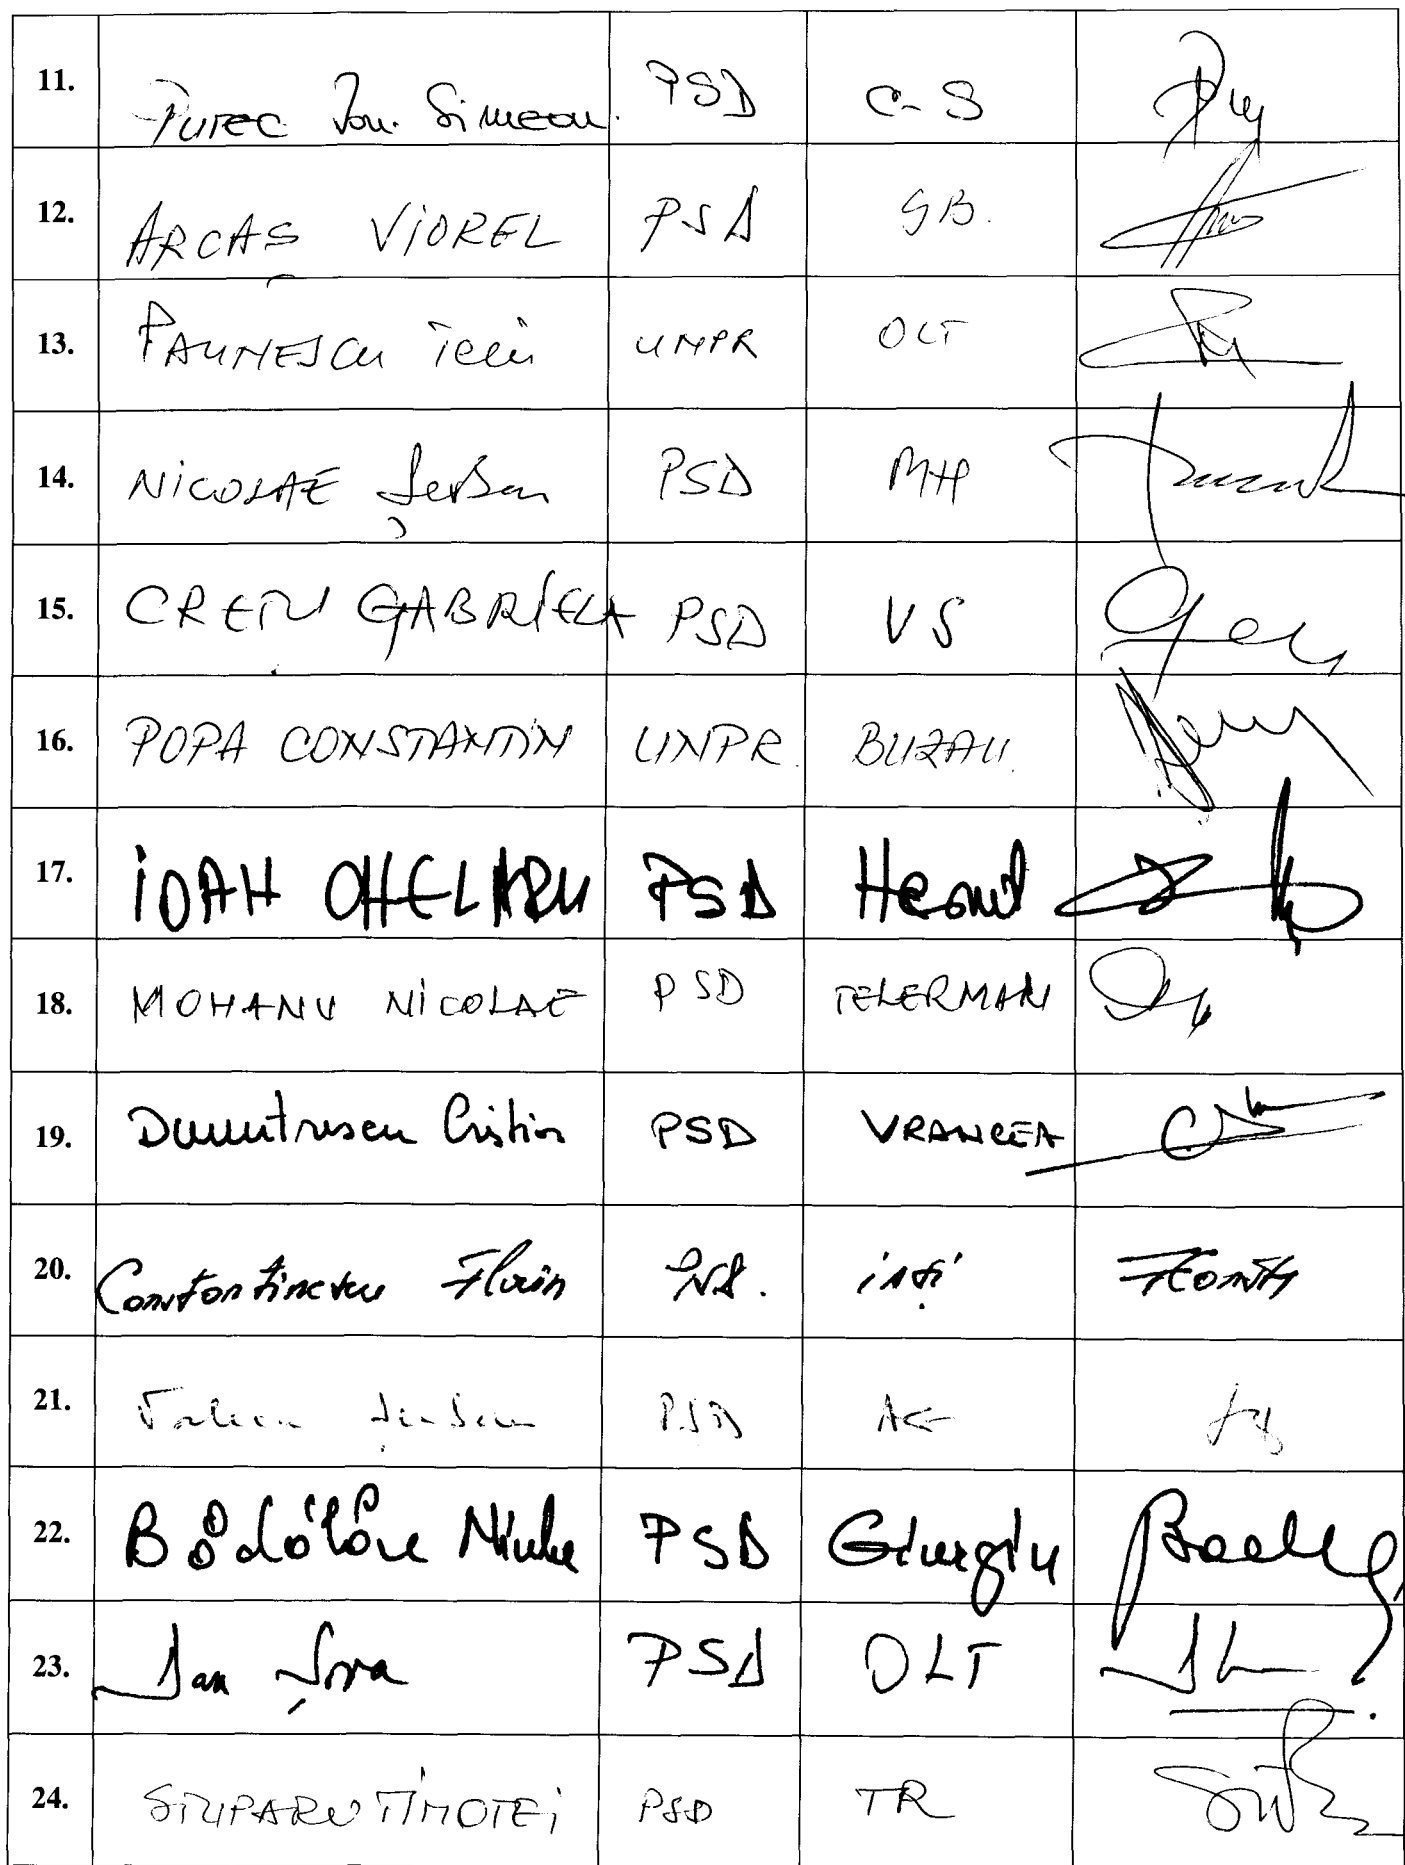 11. Purec Ion Simeon. PSD C-S
12. ARCAȘ VIOREL PSD GB.
13. PAUNESCU UNPR OLT
14. NICOLAE Șerban PSD MH
15. CREȚU GABRIELA PSD VS
16. POPA CONSTANTIN UNPR. BUZAU.
17. IOAN CHELARU PSD
18. MOHANU NICOLAE PSD TELERMAN
19. Dumitrescu Cristian PSD VRANCEA
20. Constantinescu Florin PSD. iași
21. PSD AG
22. PSD Giurgiu
23. Dan Șova PSD OLT
24. STUPARU TIMOTEI PSD TR